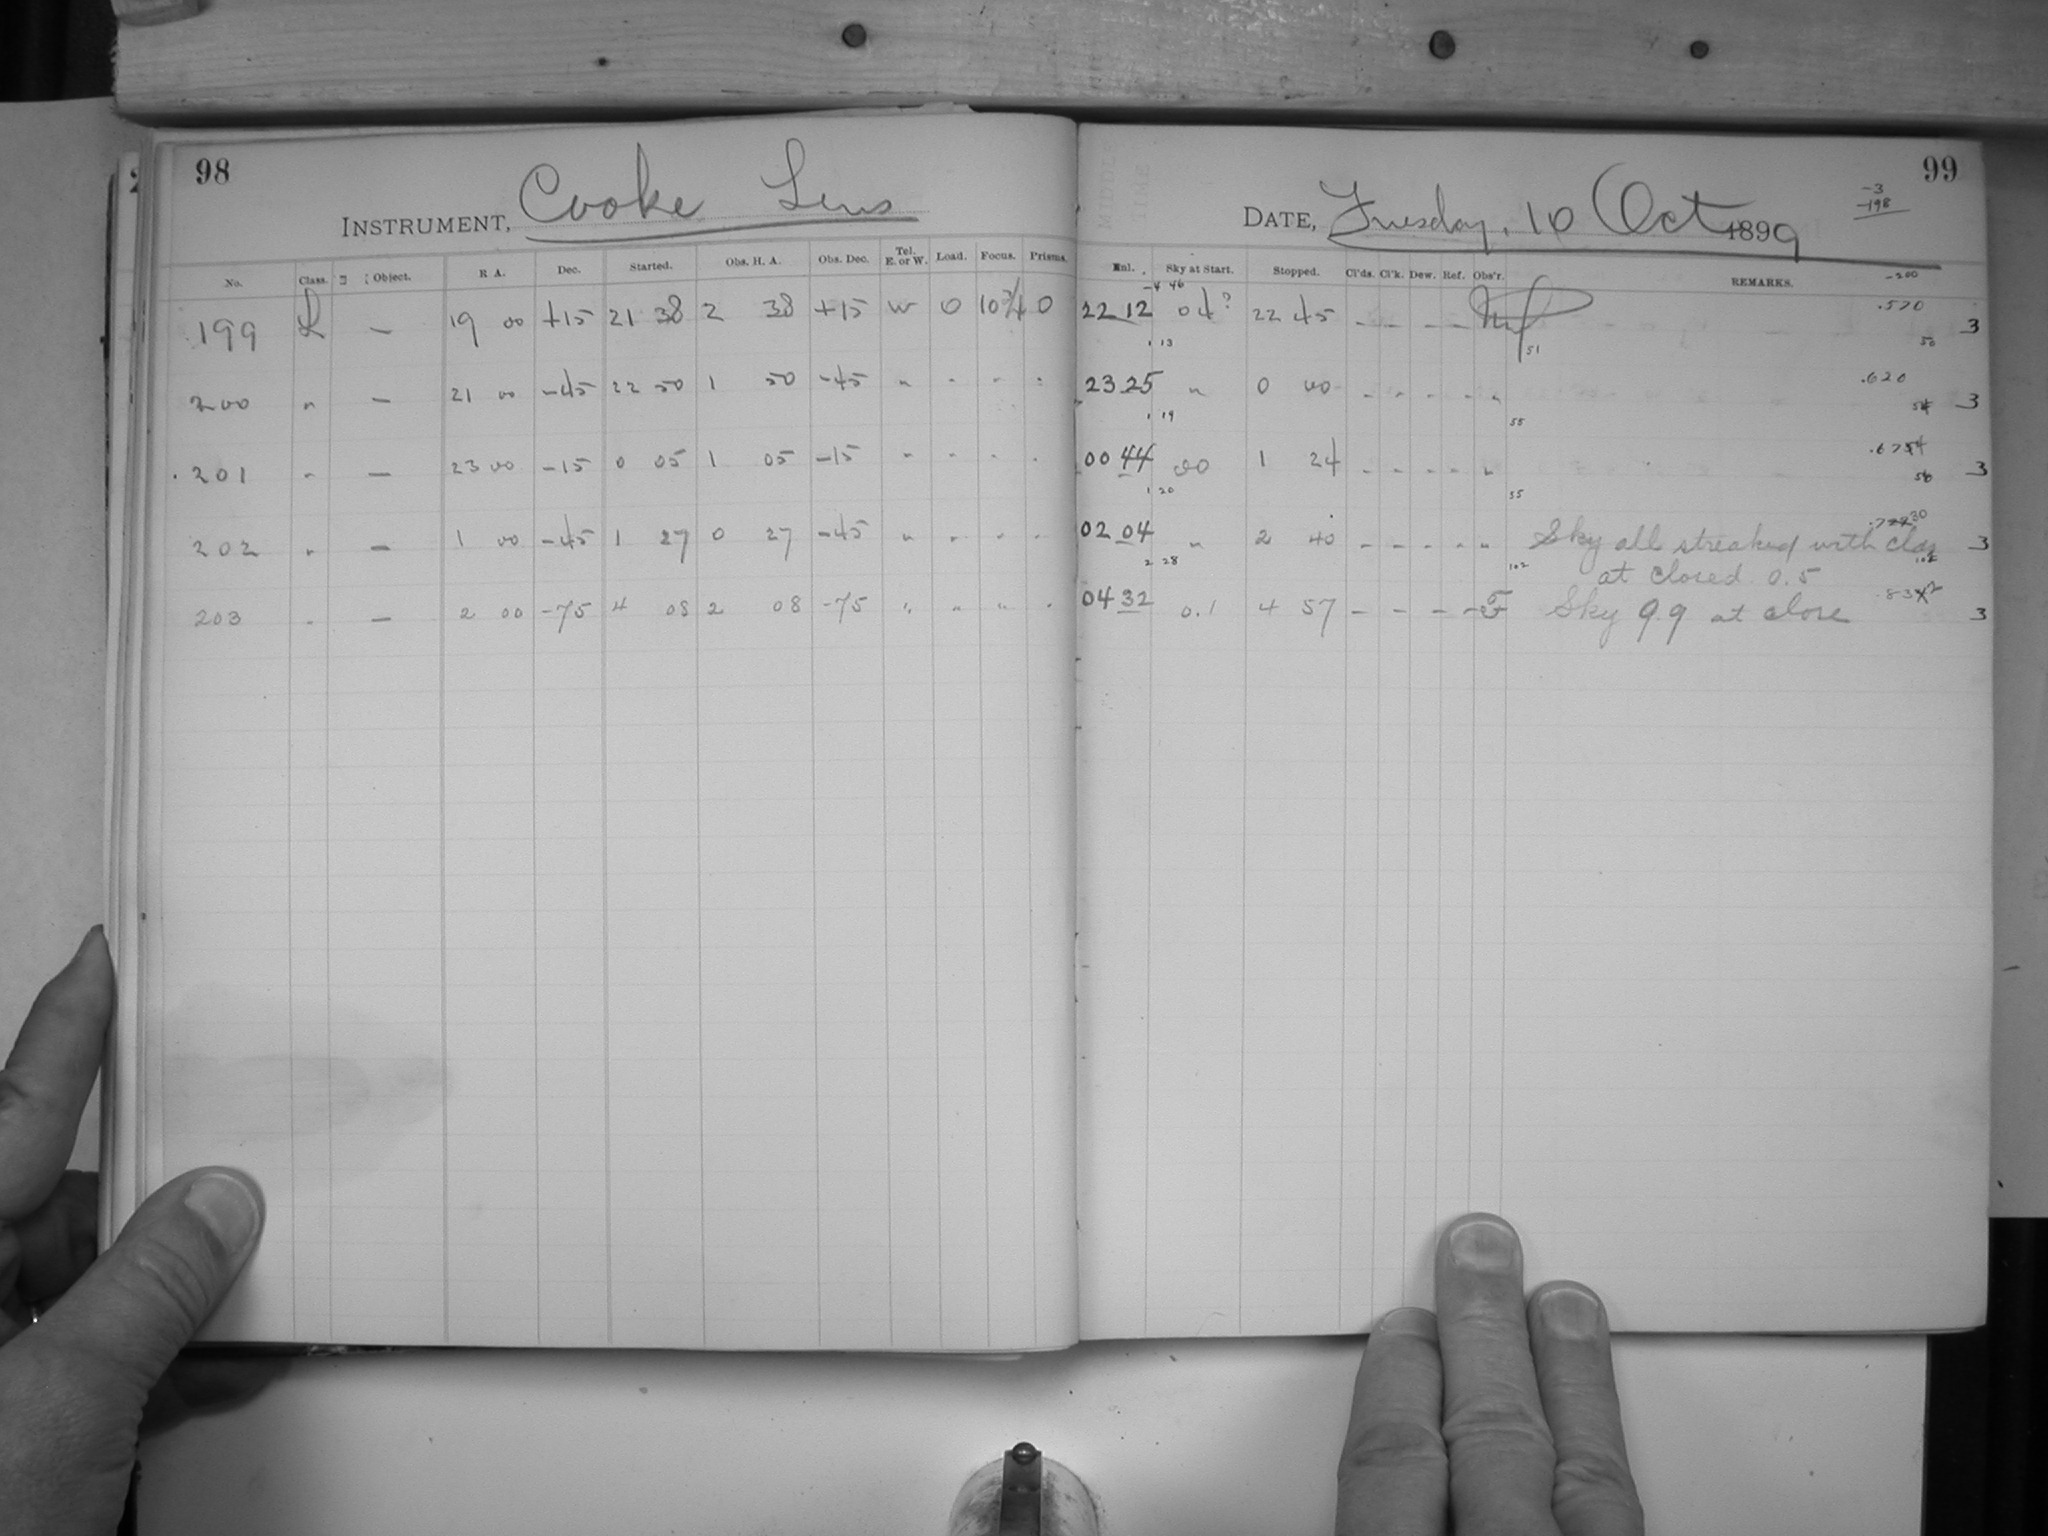 98
INSTRUMENT, Cooke Lens
No. Class. Object. R A. Dec. Started. Obs. H. A. Obs. Dec. Tel. E. or W. Load. Focus. Prisms.
199 L — 19 00 +15 21 38 2 38 +15 W 0 10 3/4 0
200 " — 21 00 -45 22 50 1 50 -45 " " " "
201 " — 23 00 -15 0 05 1 05 -15 " " " "
202 " — 1 00 -45 1 27 0 27 -45 " " " "
203 " — 2 00 -75 4 08 2 08 -75 " " " "
99
-3
-198
DATE, Tuesday, 10 Oct 1899
-200
Sky at Start. Stopped. Cl'ds. Cl'k. Dew. Ref. Obs'r. REMARKS.
-4 46
22 12 04? 22 45 — — — — .570 3
1 13 51 50
23 25 " 0 00 - - - - " .620 3
1 19 55
00 44 00 1 24 - - - - " 3
1 20 55
02 04 " 2 40 - - - - " Sky all streaked with 3
2 28 102
at closed 0.5
04 32 0.1 4 57 — — — — Sky 9.9 at close 3